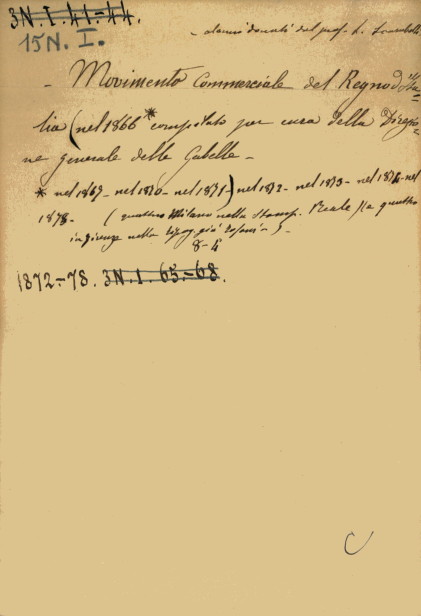 3N.I.41-44.
15N. I.
- alcuni donati dal prof. L.
- Movimento Commerciale del Regno d'Ita-
lia (nel 1866 * compilato per cura della Direzio-
ne generale delle Gabelle -
* nel 1869 - nel 1870 - nel 1871 -) nel 1872 - nel 1873 - nel 1874 - nel
1878 - (quattro Milano nella Stamp. Reale / a quattro
in firenze nella tipog. già -
8-4
1872-78. 3N.I.65-68.
C